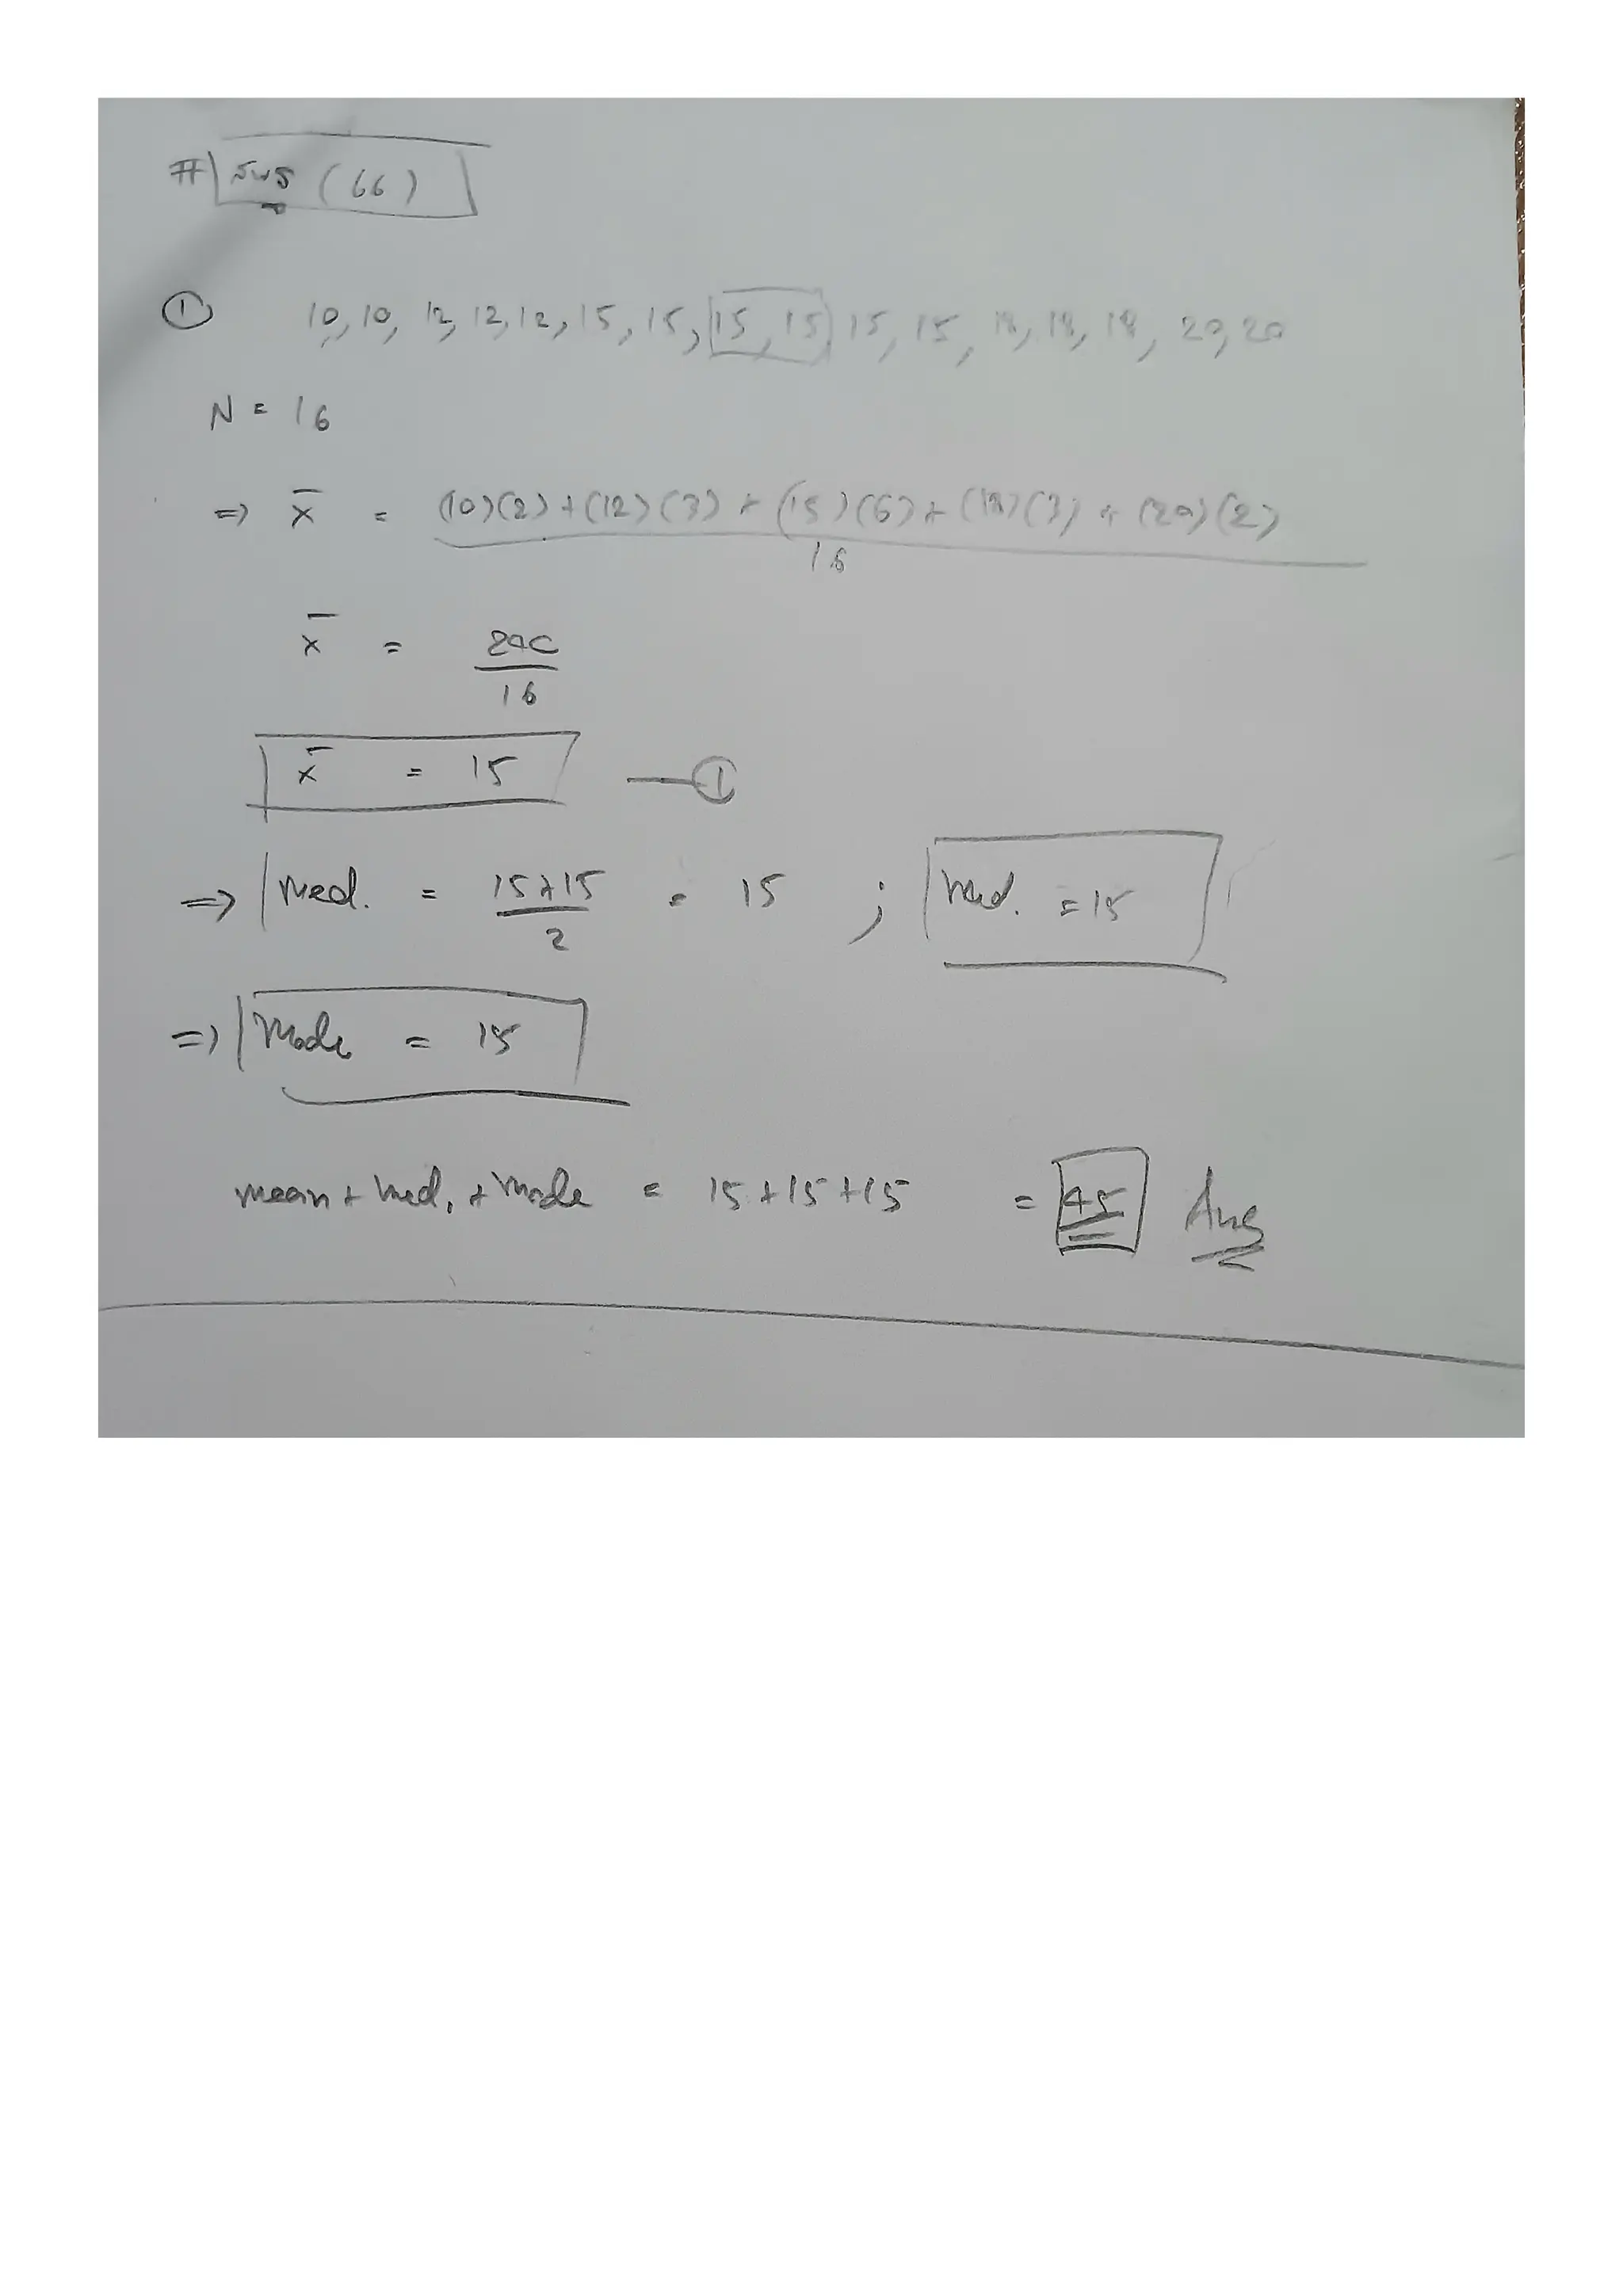 # สพร (66)
① 10, 10, 12, 12, 12, 15, 15, 15, 15, 15, 15, 18, 18, 18, 20, 20
N = 16
=> x̄ = (10)(2)+(12)(3)+(15)(6)+(18)(3)+(20)(2)
16
x̄ = 240
16
x̄ = 15 —①
=> Med. = 15+15 = 15 ; Med. = 15
2
=> Mode = 15
mean + Med. + Mode = 15+15+15 = 45 Ans